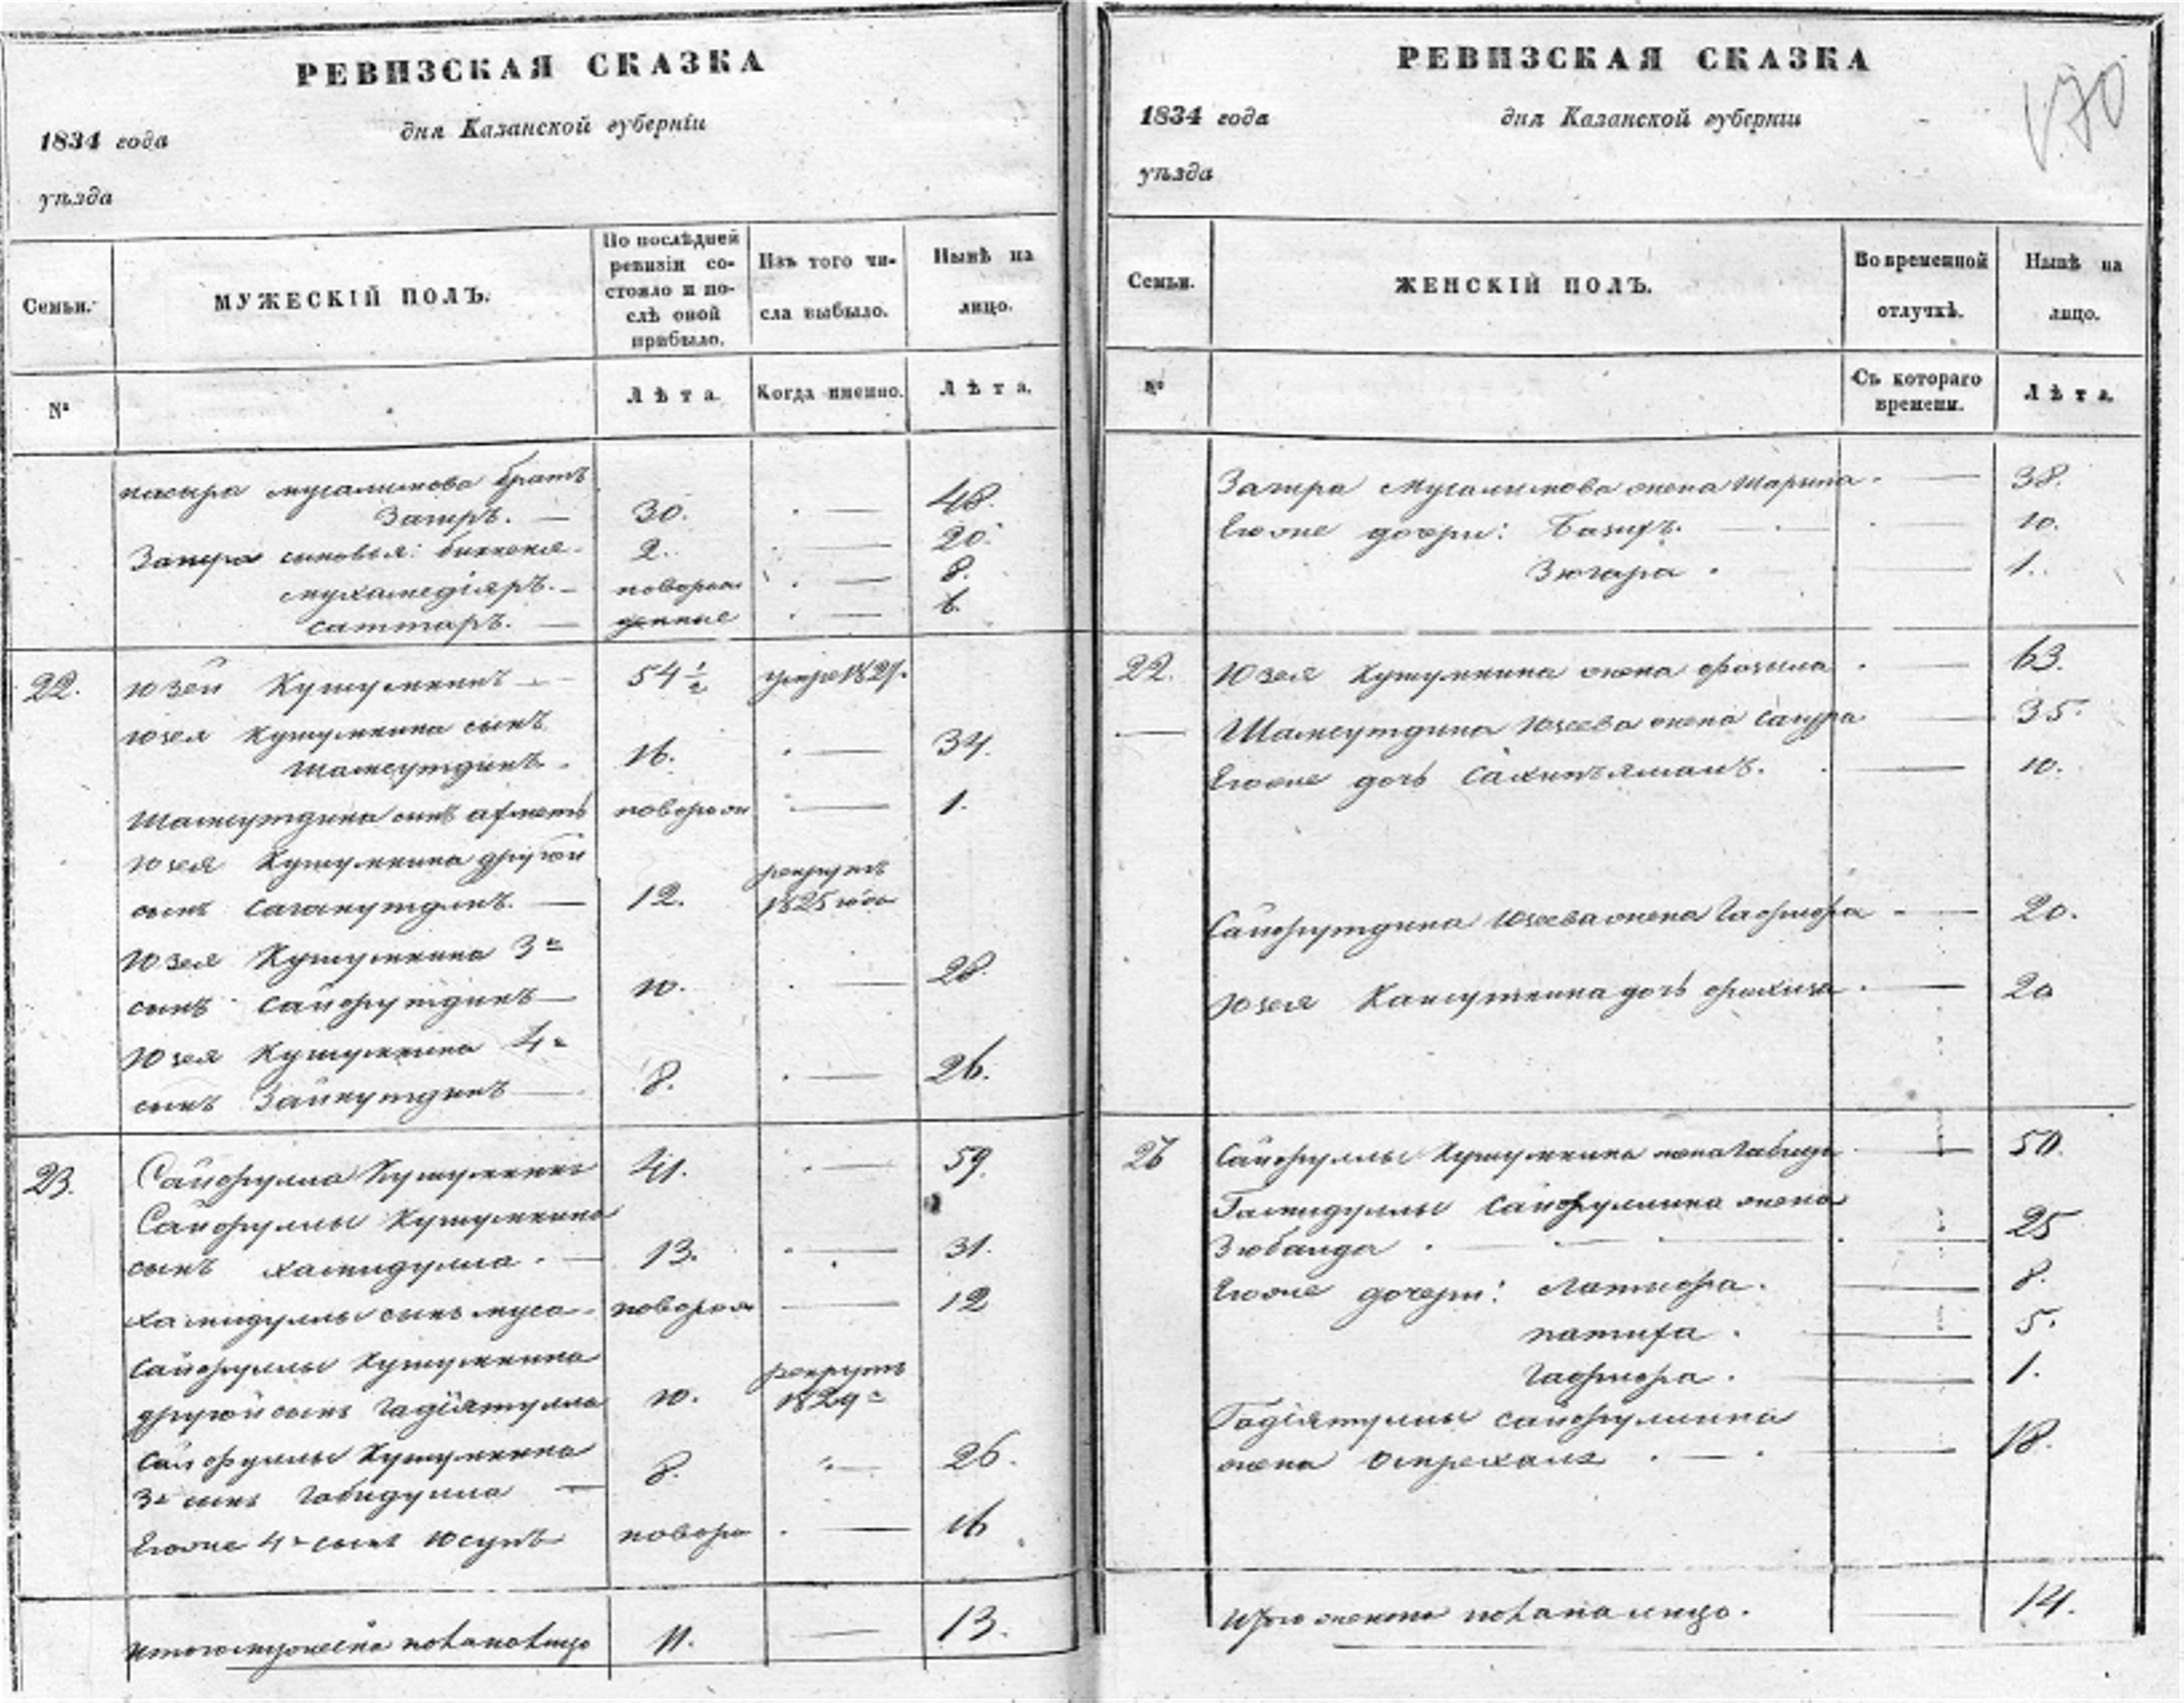 РЕВИЗСКАЯ СКАЗКА
1834 года
дня Казанской губерніи
уѣзда
Семьи.
МУЖЕСКІЙ ПОЛЪ.
По послѣдней ревизіи состояло и послѣ оной прибыло.
Изъ того числа выбыло.
Нынѣ на лицо.
№
Лѣта.
Когда именно.
Лѣта.
мусалимова братъ
Загиръ. — 30. — 48.
Загира сыновья: 2. — 20.
мухамедіяръ. — новорож — 8.
саттаръ. — денные — 6.
22. Юзей Кушумкинъ — 54 ½ умре 1827.
Юзея Кушумкина сынъ
Шамсутдинъ 16. — 34.
Шамсутдина сынъ ахметъ новорож — 1.
Юзея Кушумкина другой рекрутъ
сынъ 12. 1825 года
Юзея Кушумкина 3й
сынъ Сайфутдинъ — 10. — 28.
Юзея Кушумкина 4й
сынъ Зайнутдинъ — 8. — 26.
23. Сайфулла Кушумкинъ 41. — 59.
Сайфуллы Кушумкина
сынъ хамидулла. — 13. — 31.
хамидуллы сынъ муса новорож — 12
Сайфуллы Кушумкина рекрутъ
другой сынъ Гадіятулла 10. 1829г
Сайфуллы Кушумкина
3й сынъ Габидулла — 8. — 26.
Егоже 4й сынъ Юсупъ новоро — 16
Итого мужеска пола на лицо 11. — 13.
РЕВИЗСКАЯ СКАЗКА
170
1834 года
дня Казанской губерніи
уѣзда
Семьи.
ЖЕНСКІЙ ПОЛЪ.
Во временной отлучкѣ.
Нынѣ на лицо.
№
Съ котораго времени.
Лѣта.
Загира Мусалимова жена — 38.
Егоже дочери: — 10.
Зюгара. — 1.
22. Юзея Кушумкина жена — 63.
— Шамсутдина Юзеева жена Сагура — 35.
Егоже дочь — 10.
Сайфутдина Юзеева жена Гафифа — 20.
Юзея дочь — 20
23 Сайфуллы Кушумкина жена — 50.
Гамидуллы Сайфуллина жена
Зюбайда. — 25
Егоже дочери: Латифа. — 8.
— 5.
Гафифа. — 1.
Гадіятуллы сайфуллина
жена — 18.
Итого женска пола на лицо. — 14.